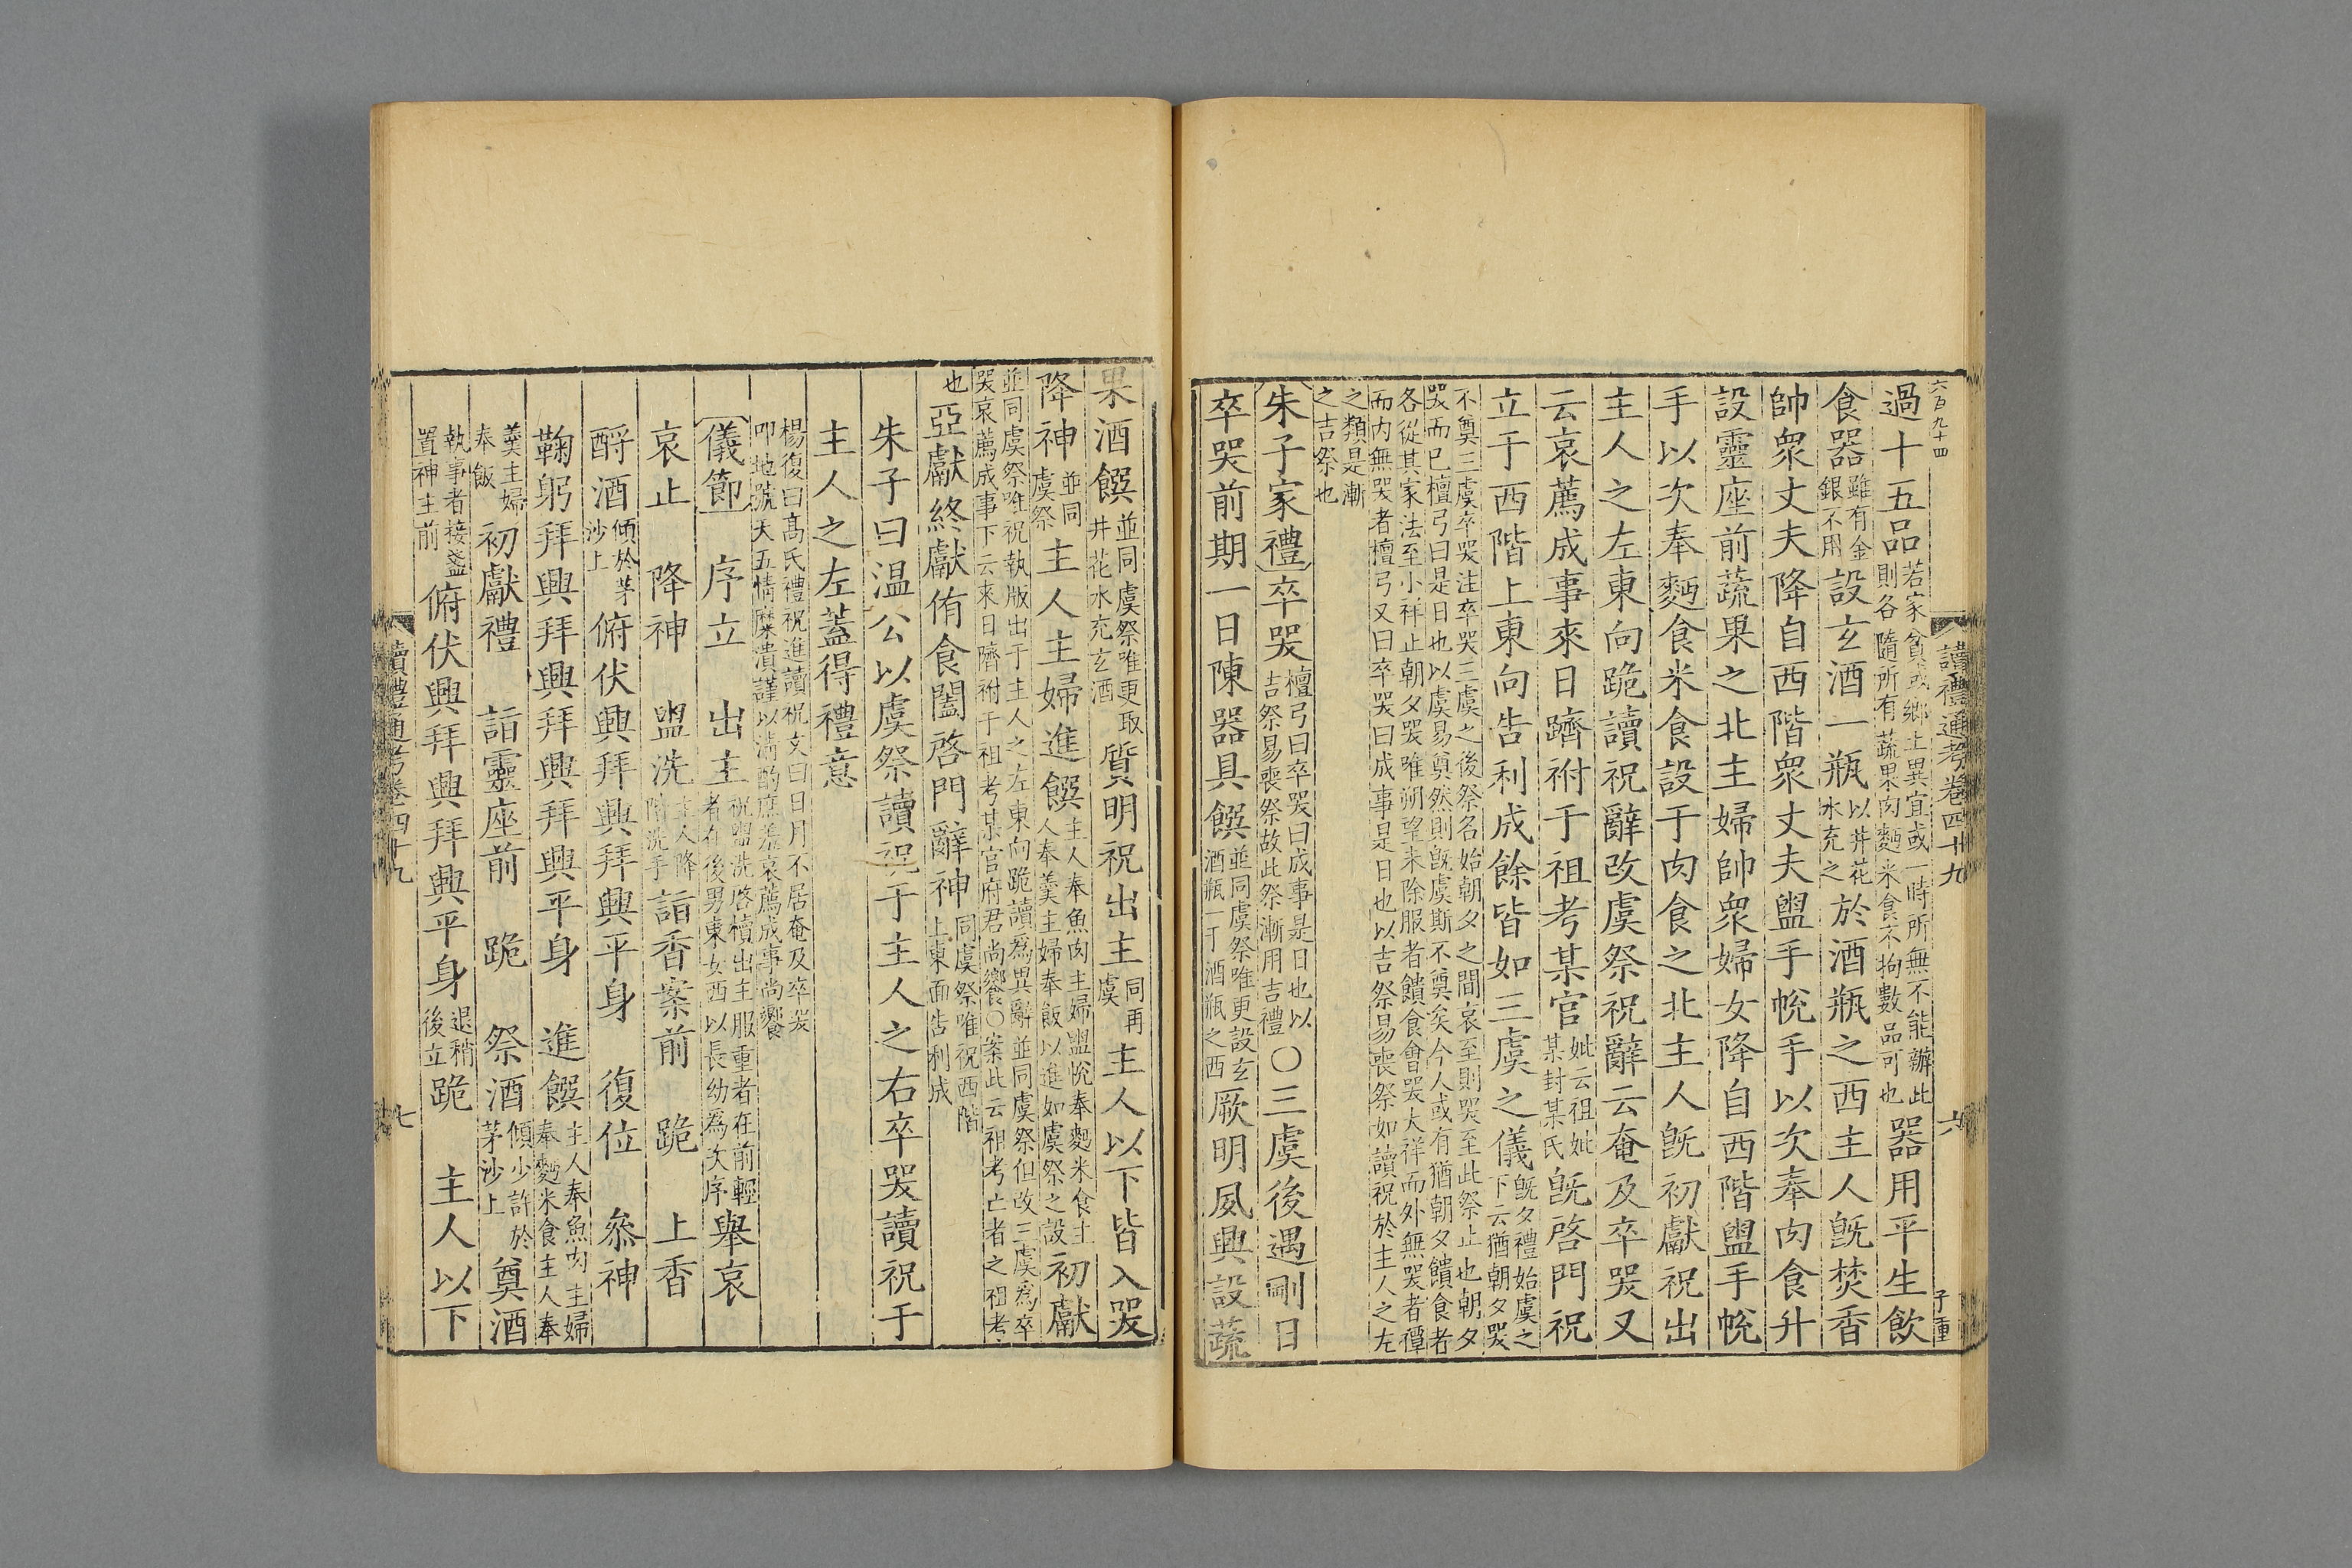 六百九十四
讀禮通考卷四十九
六
子重
過十五品若家貧或鄉土異宜或一時所無不能辦此則各隨所有蔬果肉麪米食不拘數品可也器用平生飲
食器雖有金銀不用設玄酒一瓶以井花水充之於酒瓶之西主人既焚香
帥衆丈夫降自西階衆丈夫盥手帨手以次奉肉食升
設靈座前蔬果之北主婦帥衆婦女降自西階盥手帨
手以次奉麪食米食設于肉食之北主人既初獻祝出
主人之左東向跪讀祝辭改虞祭祝辭云奄及卒哭又
云哀薦成事來日躋祔于祖考某官妣云祖妣某封某氏既啓門祝
立于西階上東向告利成餘皆如三虞之儀既夕禮始虞之下云猶朝夕哭
不奠三虞卒哭注卒哭三虞之後祭名始朝夕之間哀至則哭至此祭止也朝夕
哭而已檀弓曰是日也以虞易奠然則既虞斯不奠矣今人或有猶朝夕饋食者
各從其家法至小祥止朝夕哭唯朔望未除服者饋食會哭大祥而外無哭者禫
而內無哭者檀弓又曰卒哭曰成事是日也以吉祭易喪祭如讀祝於主人之左
之類是漸
之吉祭也
朱子家禮卒哭檀弓曰卒哭曰成事是日也以吉祭易喪祭故此祭漸用吉禮○三虞後遇剛日
卒哭前期一日陳器具饌並同虞祭唯更設玄酒瓶一于酒瓶之西厥明夙興設蔬
果酒饌並同虞祭唯更取井花水充玄酒質明祝出主同再虞主人以下皆入哭
降神並同虞祭主人主婦進饌主人奉魚肉主婦盥帨奉麪米食主人奉羹主婦奉飯以進如虞祭之設初獻
並同虞祭唯祝執版出于主人之左東向跪讀爲異辭並同虞祭但改三虞爲卒
哭哀薦成事下云來日隮祔于祖考某官府君尚饗○案此云祖考亡者之祖考
也亞獻終獻侑食闔啓門辭神同虞祭唯祝西階上東面告利成
朱子曰温公以虞祭讀祝于主人之右卒哭讀祝于
主人之左蓋得禮意
楊復曰高氏禮祝進讀祝文曰日月不居奄及卒哭
叩地號天五情糜潰謹以清酌庶羞哀薦成事尚饗
儀節 序立 出主祝盥洗啓櫝出主服重者在前輕者在後男東女西以長幼爲次序舉哀
哀止 降神 盥洗主人降階洗手詣香案前 跪 上香
酹酒傾於茅沙上俯伏興拜興拜興平身 復位 叅神
鞠躬拜興拜興拜興拜興平身 進饌主人奉魚肉主婦奉麪米食主人奉
羹主婦奉飯初獻禮 詣靈座前 跪 祭酒傾少許於茅沙上奠酒
執事者接盞置神主前俯伏興拜興拜興平身退稍後立跪 主人以下
讀禮通考卷四十九
七